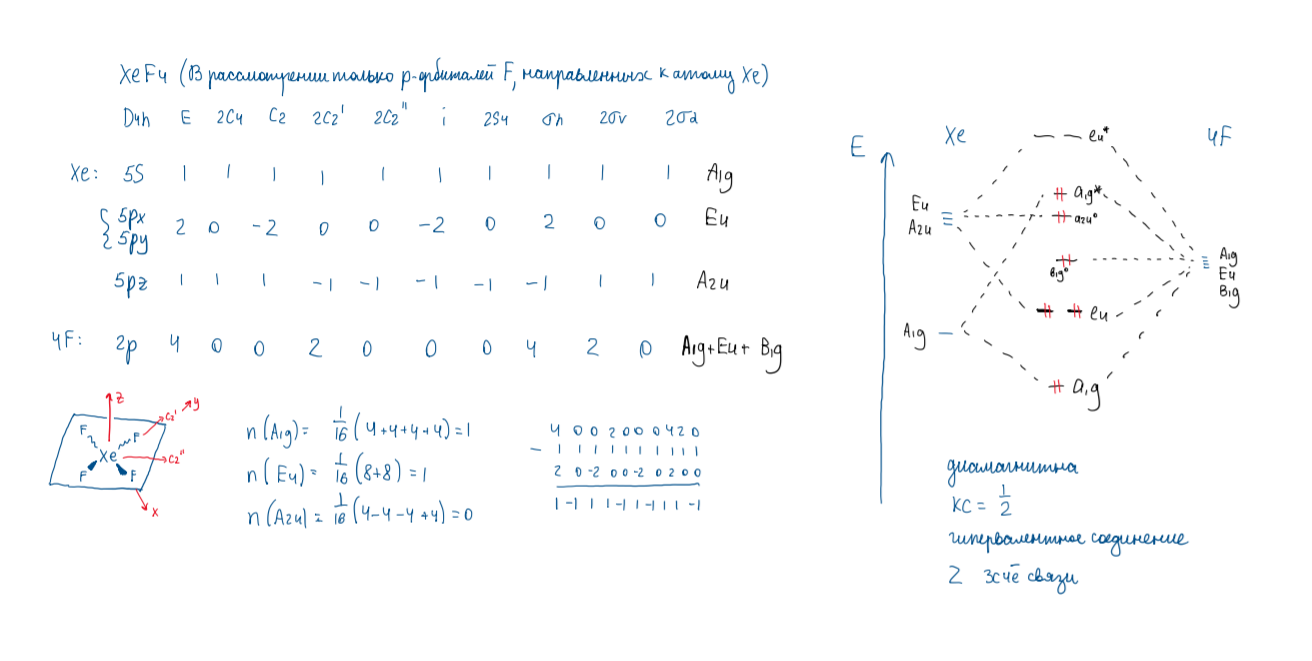 XeF4 (В рассмотрении только p-орбиталей F, направленных к атому Xe)
D4h E 2C4 C2 2C2' 2C2" i 2S4 σh 2σv 2σd
Xe: 5S 1 1 1 1 1 1 1 1 1 1 A1g
{ 5px
5py 2 0 -2 0 0 -2 0 2 0 0 Eu
5pz 1 1 1 -1 -1 -1 -1 -1 1 1 A2u
4F: 2p 4 0 0 2 0 0 0 4 2 0 A1g+Eu+B1g
z
C2' y
F F
Xe C2"
F F
x
n(A1g)= 1/16 (4+4+4+4)=1
n(Eu)= 1/16 (8+8)=1
n(A2u)= 1/16 (4-4-4+4)=0
4 0 0 2 0 0 0 4 2 0
- 1 1 1 1 1 1 1 1 1 1
2 0 -2 0 0 -2 0 2 0 0
1 -1 1 1 -1 1 -1 1 1 -1
E
Xe
4F
eu*
a1g*
Eu
A2u
a2u°
b1g°
A1g
Eu
B1g
eu
A1g
a1g
диамагнитна
КС = 1/2
гипервалентное соединение
2 3сче связи